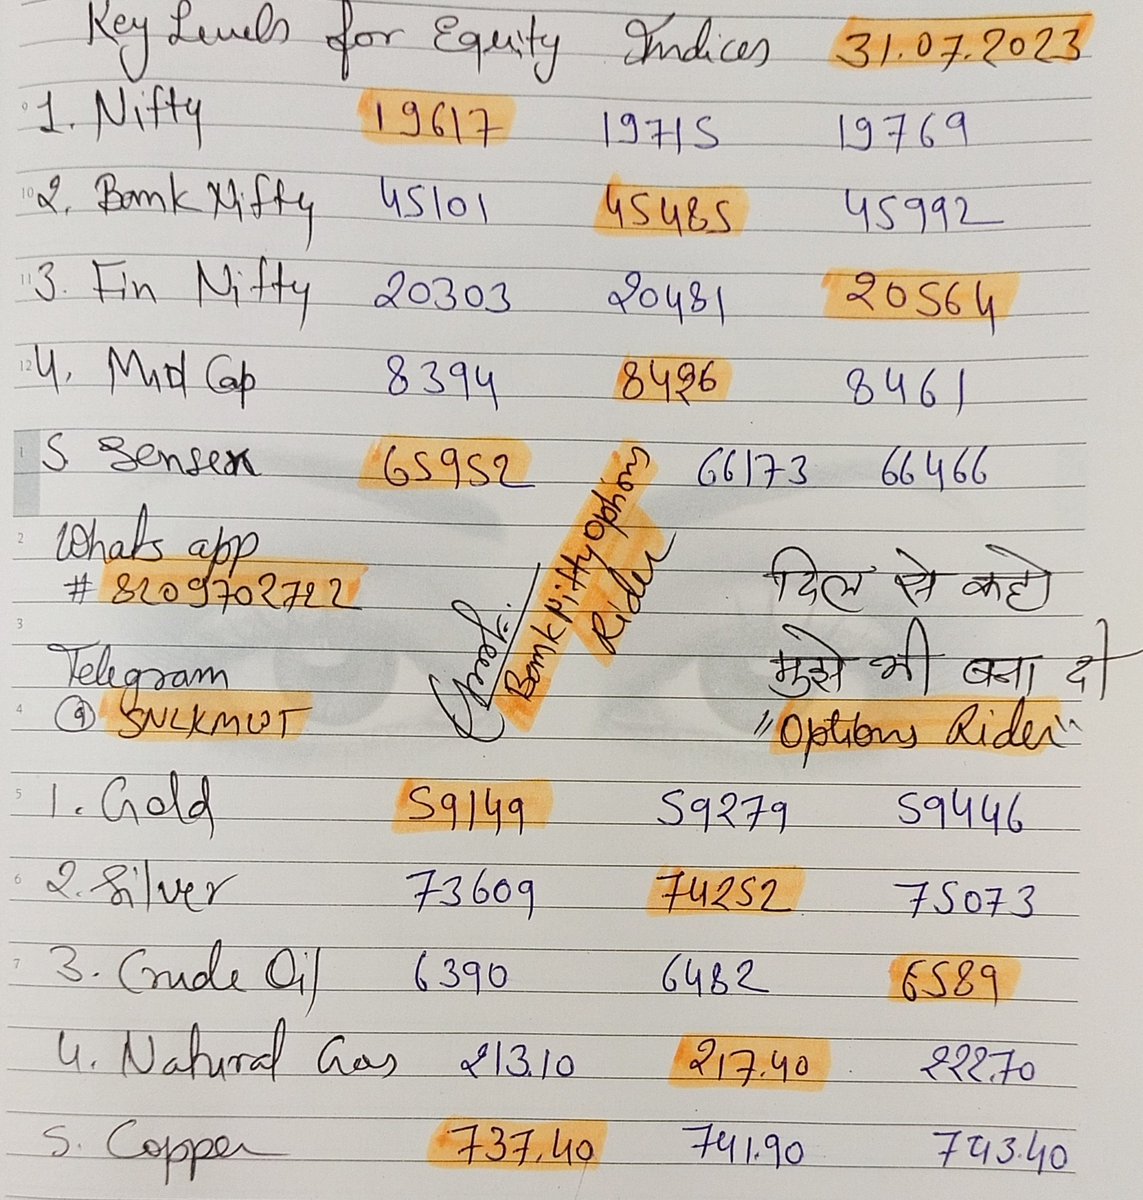 Key Levels for Equity Indices 31.07.2023
1. Nifty 19617 19715 19769
2. Bank Nifty 45101 45485 45992
3. Fin Nifty 20303 20481 20564
4. Mid Cap 8394 8426 8461
5 Sensex 65952 66173 66466
Whats app
# 8209702722
Telegram
@ SNLKMWT
Bank Nifty Options
Rider
दिल से कहो
मुझे भी बना दो
"Options Rider"
1. Gold 59149 59279 59446
2. Silver 73609 74252 75073
3. Crude Oil 6390 6482 6589
4. Natural Gas 213.10 217.40 222.70
5. Copper 737.40 741.90 743.40